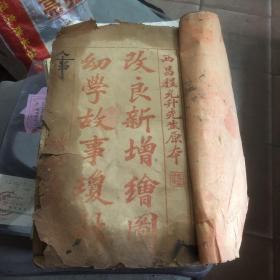 西昌程允升先生原本
改良新增繪圖
幼學故事瓊